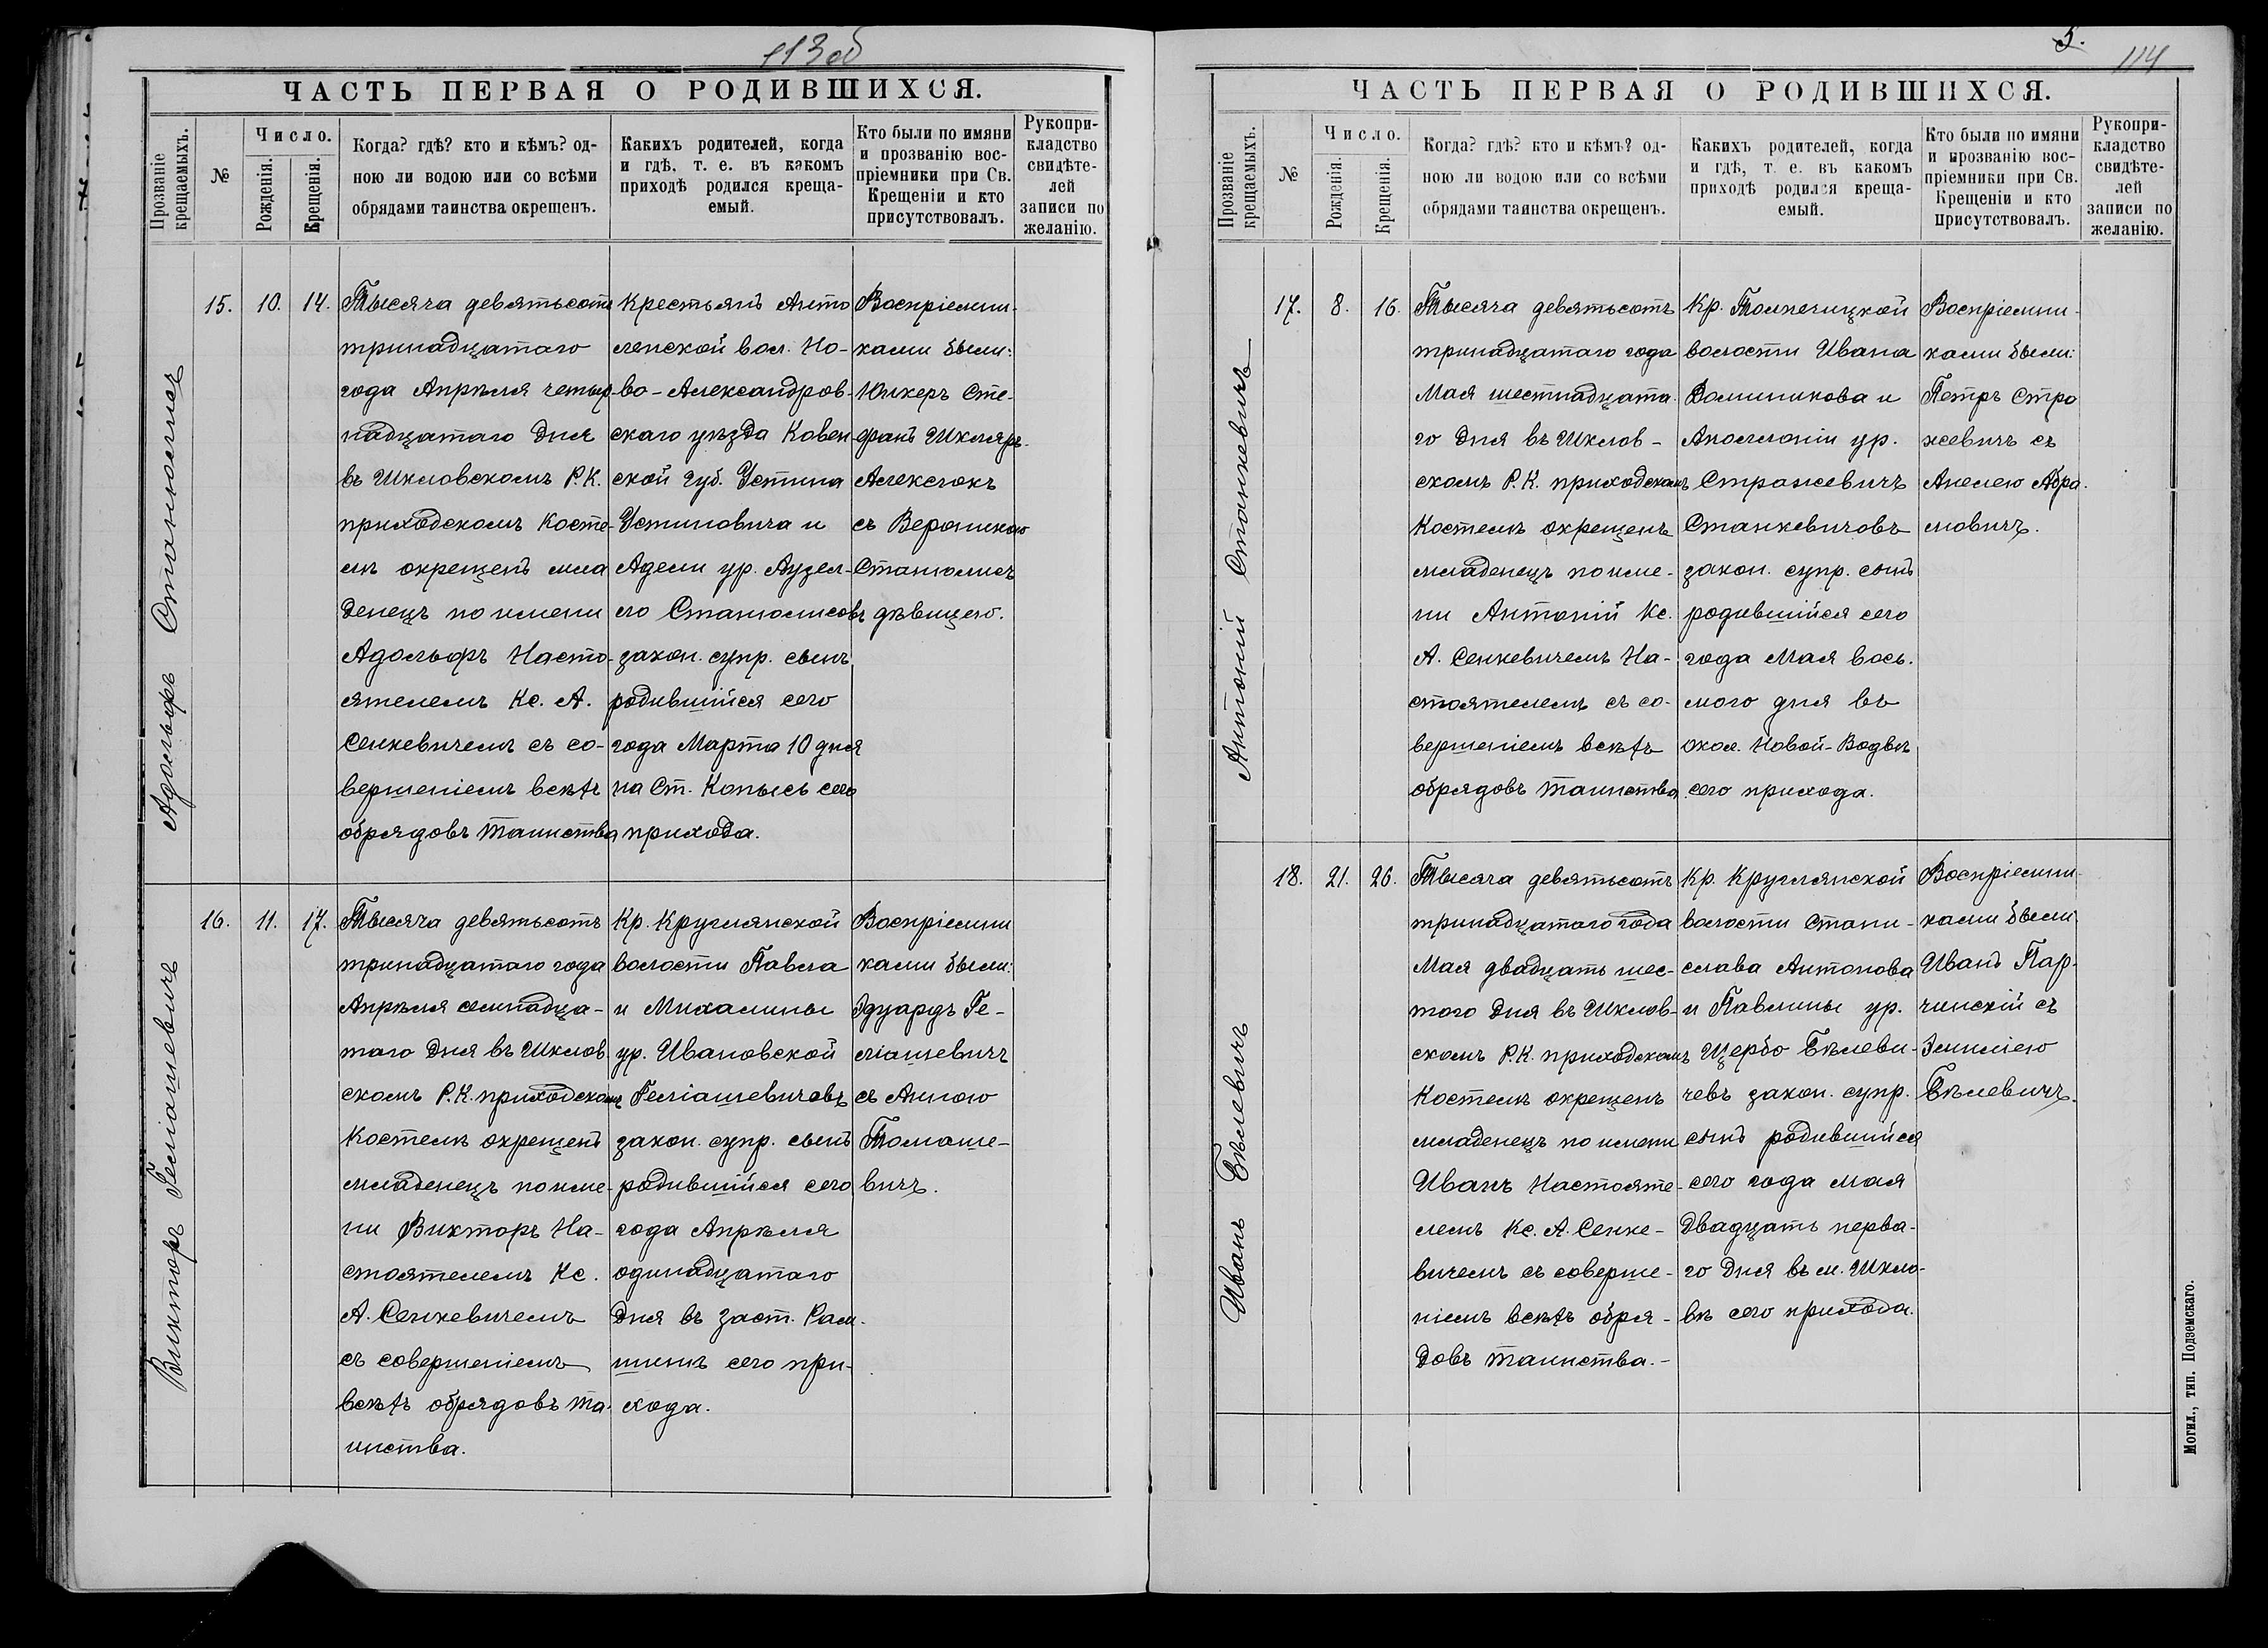 113 об
ЧАСТЬ ПЕРВАЯ О РОДИВШИХСЯ.
Прозваніе крещаемыхъ.
№
Число.
Рожденія.
Крещенія.
Когда? гдѣ? кто и кѣмъ? од-
ною ли водою или со всѣми
обрядами таинства окрещенъ.
Какихъ родителей, когда
и гдѣ, т. е. въ какомъ
приходѣ родился креща-
емый.
Кто были по имяни
и прозванію вос-
пріемники при Св.
Крещеніи и кто
присутствовалъ.
Рукопри-
кладство
свидѣте-
лей
записи по
желанію.
Адольфъ Станюлисъ
15.
10.
14.
Тысяча девятьсотъ
тринадцатаго
года Апрѣля четыр-
надцатаго дня
въ Шкловскомъ Р.К.
приходскомъ косте-
лѣ окрещенъ мла
денецъ по имени
Адольфъ Насто-
ятелемъ Кс. А.
Сенкевичемъ съ со-
вершеніемъ всѣхъ
обрядовъ таинства
Крестьянъ Анто
лепской вол. Но-
во-Александров-
скаго уѣзда Ковен
ской губ. Устина
Устиновича и
Адели ур. Аузел-
ло Станюлисовъ
закон. супр. сынъ,
родившійся сего
года Марта 10 дня
на Ст. Копысь сего
прихода.
Воспріемни-
ками были:
Юнкеръ Сте-
фанъ Шкляръ-
Алекслокъ
съ Вероникою
Станюлисъ
дѣвицею.
Викторъ Геліашевичъ
16.
11.
17.
Тысяча девятьсотъ
тринадцатаго года
Апрѣля семнадца-
таго дня въ Шклов
скомъ Р.К. приходскомъ
Костелѣ окрещенъ
младенецъ по име-
ни Викторъ На-
стоятелемъ Кс.
А. Сенкевичемъ
съ совершеніемъ
всѣхъ обрядовъ та-
инства.
Кр. Круглянской
волости Павла
и Михалины
ур. Ивановской
Геліашевичовъ
закон. супр. сынъ
родившійся сего
года Апрѣля
одинадцатаго
дня въ заст. Рам-
шинѣ сего при-
хода.
Воспріемни
ками были:
Эдуардъ Ге-
ліашевичъ
съ Анною
Томаше-
вичъ.
5.
114
ЧАСТЬ ПЕРВАЯ О РОДИВШИХСЯ.
Прозваніе крещаемыхъ.
№
Число.
Рожденія.
Крещенія.
Когда? гдѣ? кто и кѣмъ? од-
ною ли водою или со всѣми
обрядами таинства окрещенъ.
Какихъ родителей, когда
и гдѣ, т. е. въ какомъ
приходѣ родился креща-
емый.
Кто были по имяни
и прозванію вос-
пріемники при Св.
Крещеніи и кто
присутствовалъ.
Рукопри-
кладство
свидѣте-
лей
записи по
желанію.
Антоній Станкевичъ
17.
8.
16.
Тысяча девятьсотъ
тринадцатаго года
Мая шестнадцата
го дня въ Шклов-
скомъ Р.К. приходскомъ
Костелѣ окрещенъ
младенецъ по име-
ни Антоній Кс.
А. Сенкевичемъ На-
стоятелемъ съ со-
вершеніемъ всѣхъ
обрядовъ таинства
Кр. Толпечицкой
волости Ивана
Доминикова и
Аполлоніи ур.
Стражевичъ
Станкевичовъ
закон. супр. сынъ
родившійся сего
года Мая вось-
мого дня въ
окол. Новой-Водвѣ
сего прихода.
Воспріемни-
ками были:
Петръ Стро
жевичъ съ
Анелею Абра-
мовичъ.
Иванъ Бѣлевичъ
18.
21.
26.
Тысяча девятьсотъ
тринадцатаго года
Мая двадцать шес-
того дня въ Шклов-
скомъ Р.К. приходскомъ
Костелѣ окрещенъ
младенецъ по имени
Иванъ Настояте-
лемъ Кс. А. Сенке-
вичемъ съ соверше-
ніемъ всѣхъ обря-
довъ таинства.-
Кр. Круглянской
волости Стани-
слава Антонова
и Павлины ур.
Щербо Бѣлеви-
чевъ закон. супр.
сынъ родившійся
сего года мая
двадцать перва-
го дня въ м. Шкло-
вѣ сего прихода.
Воспріемни-
ками были
Иванъ Пар-
чинскій съ
Эмиліею
Бѣлевичъ.
Могил., тип. Подземскаго.